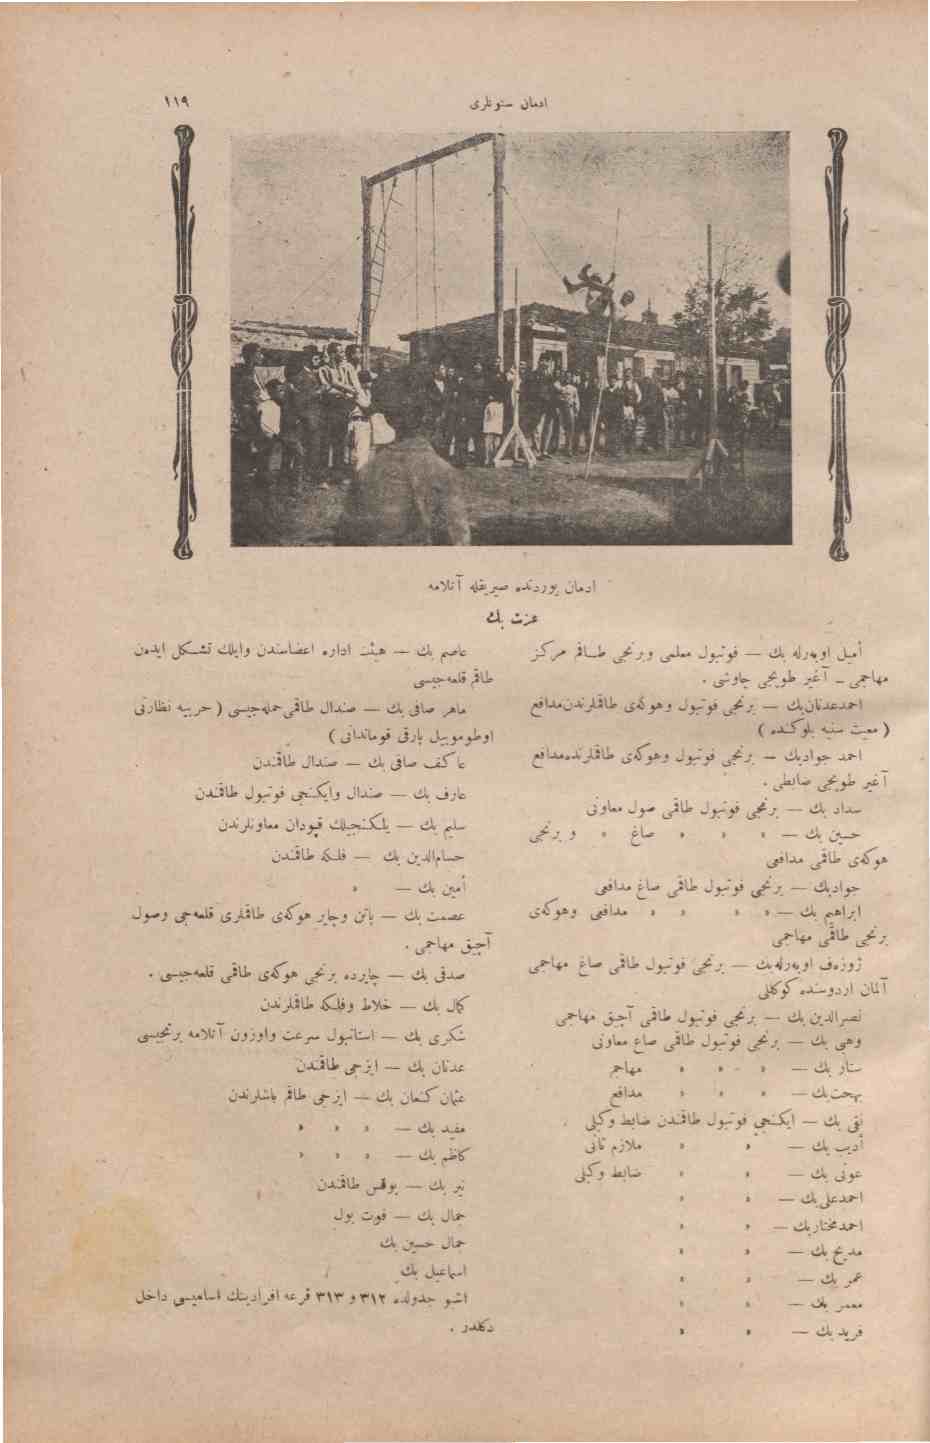 ادمان سنونلری
١١٩
ادمان یوردنده صیریقله آتلامه
عزت بك
أمیل اوبه‌رله بك — فوتبول معلمی و برنجی طاقم مركز
مهاجمی — آغیر طوپجی چاوشی .
احمدعدنان‌بك — برنجی فوتبول وهوكه‌ی طاقملرندن‌مدافع
( معیت سنیه بلوكنده )
احمد جوادبك — برنجی فوتبول وهوكه‌ی طاقملرنده‌مدافع
آغیر طوپجی ضابطی .
سداد بك — برنجی فوتبول طاقمی صول معاونی
حسین بك — » » » صاغ » و برنجی
هوكه‌ی طاقمی مدافعی
جوادبك — برنجی فوتبول طاقمی صاغ مدافعی
ابراهیم بك — » » » » مدافعی وهوكه‌ی
برنجی طاقمی مهاجمی
ژوزه‌ف اوبه‌رله‌بك — برنجی فوتبول طاقمی صاغ مهاجمی
آلمان اردوسنده كوكللی
نصرالدین بك — برنجی فوتبول طاقمی آچیق مهاجمی
وهبی بك — برنجی فوتبول طاقمی صاغ معاونی
ستار بك — » » » مهاجم
بهجت‌بك — » » » مدافع
نقی بك — ایكنجی فوتبول طاقمندن ضابط وكیلی
أدیب بك — » » ملازم ثانی
عونی بك — » » ضابط وكیلی
احمدعلی‌بك — » »
احمدمختاربك — » »
مدیح بك — » »
عمر بك — » »
معمر بك — » »
فرید بك — » »
عاصم بك — هیئت اداره اعضاسندن وایلك تشكل ایده‌ن
طاقم قلعه‌جیسی
ماهر صافی بك — صندال طاقمی‌حمله‌جیسی ( حربیه نظارتی
اوطوموبیل پارقی قومانداتی )
عاكف صافی بك — صندال طاقمندن
عارف بك — صندال وایكنجی فوتبول طاقمندن
سلیم بك — یلكنجیلك قپودان معاونلرندن
حسام‌الدین بك — فلكه طاقمندن
أمین بك — »
عصمت بك — پاتن وچایر هوكه‌ی طاقملری قلعه‌جی وصول
آچیق مهاجمی .
صدقی بك — چایرده برنجی هوكه‌ی طاقمی قلعه‌جیسی .
كمال بك — خلاط وفلكه طاقملرندن
شكری بك — استانبول سرعت واوزون آتلامه برنجیسی
عدنان بك — ایزجی طاقمندن
عثمان كنعان بك — ایزجی طاقم باشلرندن
مفید بك — » » »
كاظم بك — » » »
نیر بك — بوقس طاقمندن
جمال بك — فوت بول
جمال حسین بك
اسماعیل بك
اشبو جدولده ٣١٢ و ٣١٣ قرعه افرادینك اسامیسی داخل
دكلدر .